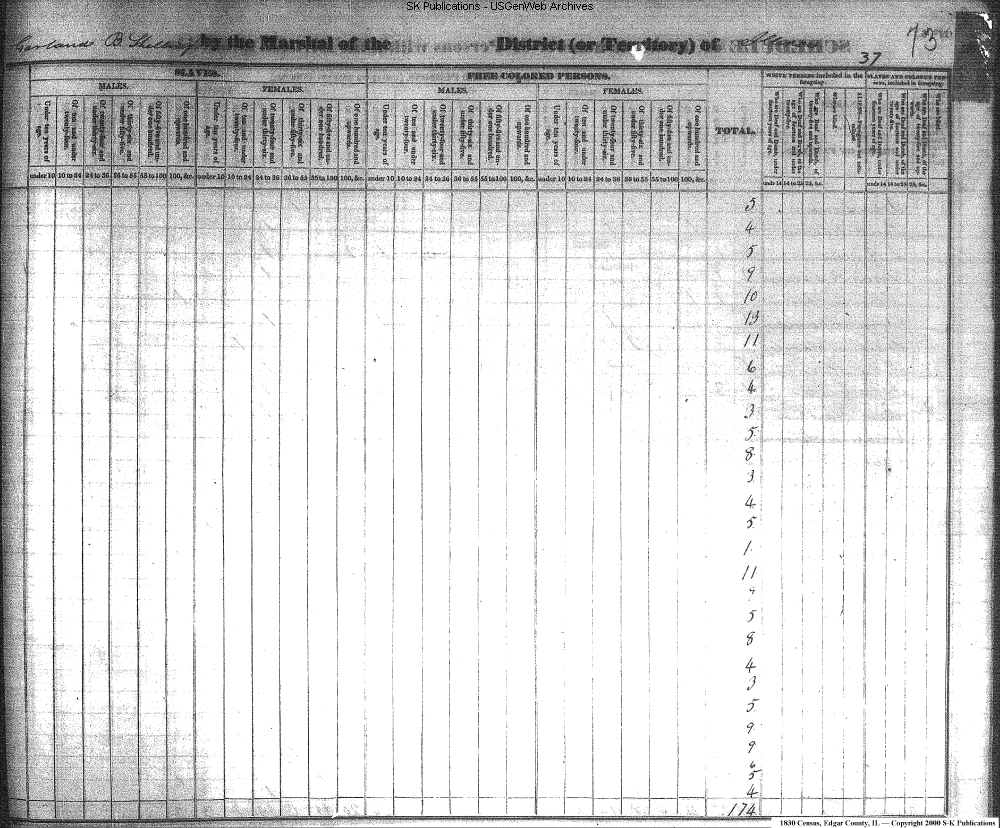 SK Publications - USGenWeb Archives
Garland B. Shelledy by the Marshal of the District (or Territory) of
73
37
SLAVES.
FREE COLORED PERSONS.
TOTAL.
WHITE PERSONS included in the foregoing.
SLAVES AND COLORED PERSONS, included in the foregoing.
MALES.
FEMALES.
MALES.
FEMALES.
Under ten years of age.
Of ten and under twenty-four.
Of twenty-four and under thirty-six.
Of thirty-six and under fifty-five.
Of fifty-five and under one hundred.
Of one hundred and upwards.
Under ten years of age.
Of ten and under twenty-four.
Of twenty-four and under thirty-six.
Of thirty-six and under fifty-five.
Of fifty-five and under one hundred.
Of one hundred and upwards.
Under ten years of age.
Of ten and under twenty-four.
Of twenty-four and under thirty-six.
Of thirty-six and under fifty-five.
Of fifty-five and under one hundred.
Of one hundred and upwards.
Under ten years of age.
Of ten and under twenty-four.
Of twenty-four and under thirty-six.
Of thirty-six and under fifty-five.
Of fifty-five and under one hundred.
Of one hundred and upwards.
under 10 10 to 24 24 to 36 36 to 55 55 to 100 100, &c. under 10 10 to 24 24 to 36 36 to 55 55 to 100 100, &c. under 10 10 to 24 24 to 36 36 to 55 55 to 100 100, &c. under 10 10 to 24 24 to 36 36 to 55 55 to 100 100, &c.
5
4
5
9
10
13
11
6
4
3
5
8
3
4
5
1
11
9
5
8
4
3
5
9
9
6
5
4
174
1830 Census, Edgar County, IL — Copyright 2000 S-K Publications